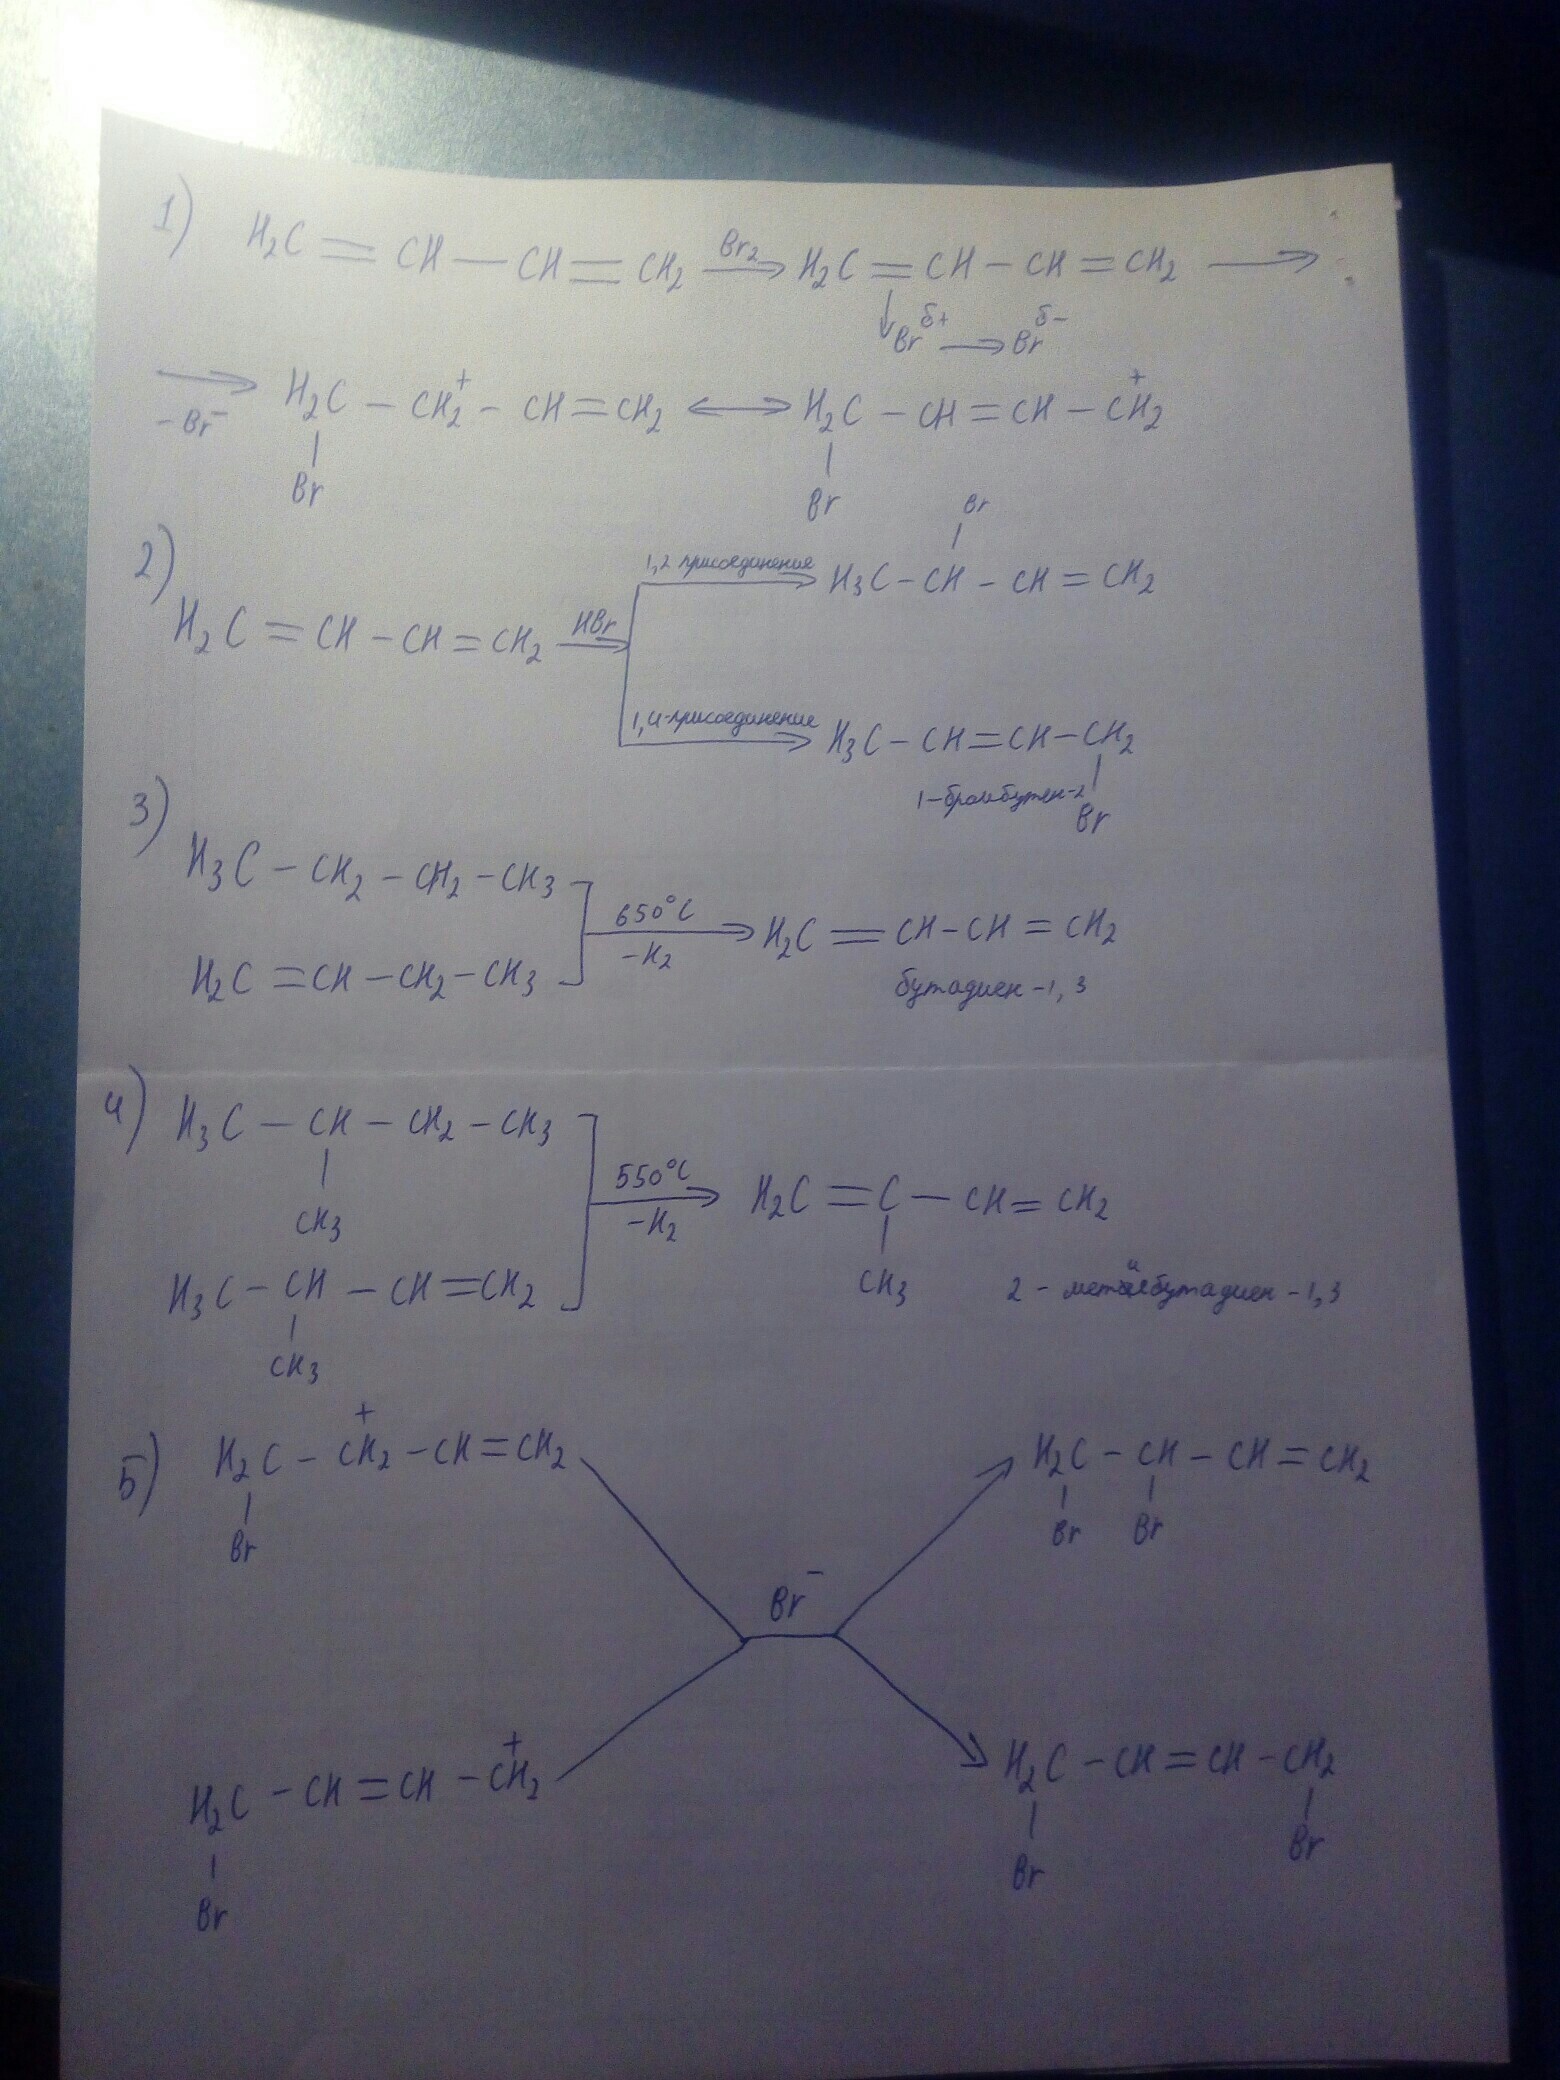 1) H₂C = CH — CH = CH₂ Br₂→ H₂C = CH – CH = CH₂ →
↓Br δ+ → Br δ−
→ −Br⁻ H₂C – CH₂⁺ – CH = CH₂ ↔ H₂C – CH = CH – CH₂⁺
Br Br
2) H₂C = CH – CH = CH₂ HBr→
1,2 присоединения → H₃C – CH – CH = CH₂
Br
1,4-присоединения → H₃C – CH = CH – CH₂
Br
1-бромбутен-2
3) H₃C – CH₂ – CH₂ – CH₃
H₂C = CH – CH₂ – CH₃
650°C
−H₂
→ H₂C = CH – CH = CH₂
бутадиен-1,3
4) H₃C – CH – CH₂ – CH₃
CH₃
H₃C – CH – CH = CH₂
CH₃
550°C
−H₂
→ H₂C = C – CH = CH₂
CH₃
2 - метилбутадиен-1,3
5) H₂C – CH₂⁺ – CH = CH₂
Br
H₂C – CH = CH – CH₂⁺
Br
Br⁻
H₂C – CH – CH = CH₂
Br Br
H₂C – CH = CH – CH₂
Br Br